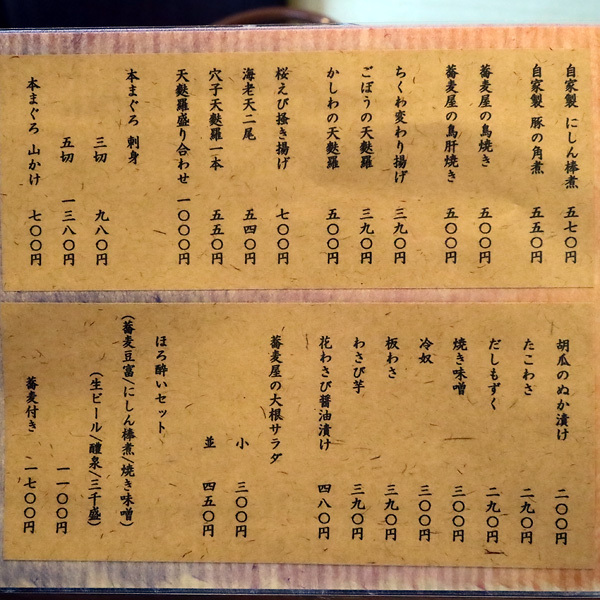 自家製 にしん棒煮 五七〇円
自家製 豚の角煮 五五〇円
蕎麦屋の鳥焼き 五〇〇円
蕎麦屋の鳥肝焼き 五〇〇円
ちくわ変わり揚げ 三九〇円
ごぼうの天麩羅 三九〇円
かしわの天麩羅 五〇〇円
桜えび掻き揚げ 七〇〇円
海老天二尾 五四〇円
穴子天麩羅一本 五五〇円
天麩羅盛り合わせ 一〇〇〇円
本まぐろ 刺身
三切 九八〇円
五切 一三八〇円
本まぐろ 山かけ 七〇〇円
胡瓜のぬか漬け 二〇〇円
たこわさ 二九〇円
だしもずく 二九〇円
焼き味噌 三〇〇円
冷奴 三〇〇円
板わさ 三九〇円
わさび芋 三九〇円
花わさび醤油漬け 四八〇円
蕎麦屋の大根サラダ
小 三〇〇円
並 四五〇円
ほろ酔いセット
(蕎麦豆富/にしん棒煮/焼き味噌)
(生ビール/醴泉/三千盛)
一一〇〇円
蕎麦付き 一七〇〇円